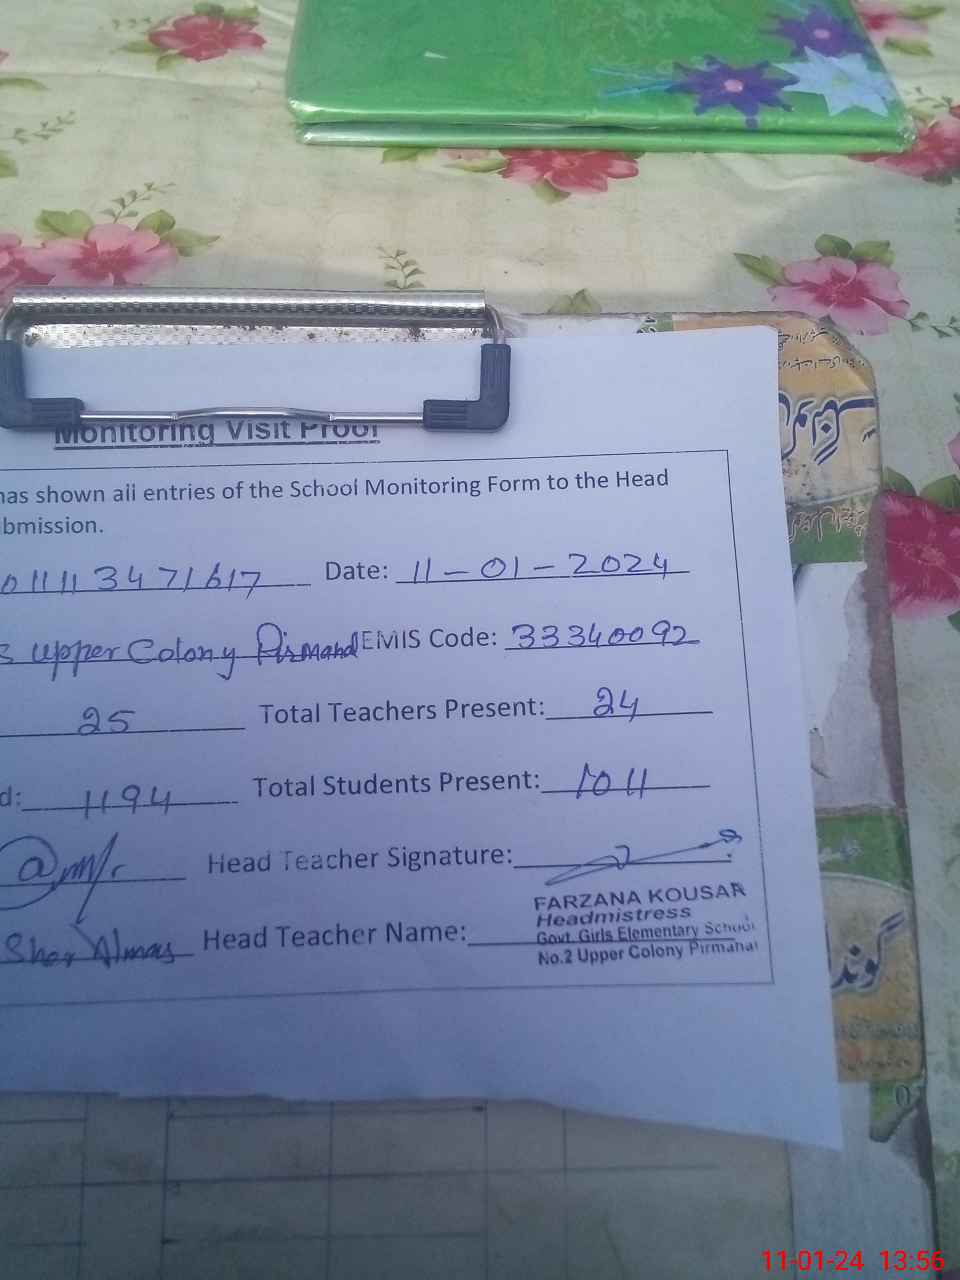 Monitoring Visit Proof
has shown all entries of the School Monitoring Form to the Head
bmission.
011113471617 Date: 11-01-2024
Upper Colony Pirmahal EMIS Code: 33340092
25 Total Teachers Present: 24
d: 1194 Total Students Present: 1011
Head Teacher Signature:
Sher Almas Head Teacher Name:
FARZANA KOUSAR
Headmistress
Govt. Girls Elementary School
No.2 Upper Colony Pirmahal
11-01-24 13:56